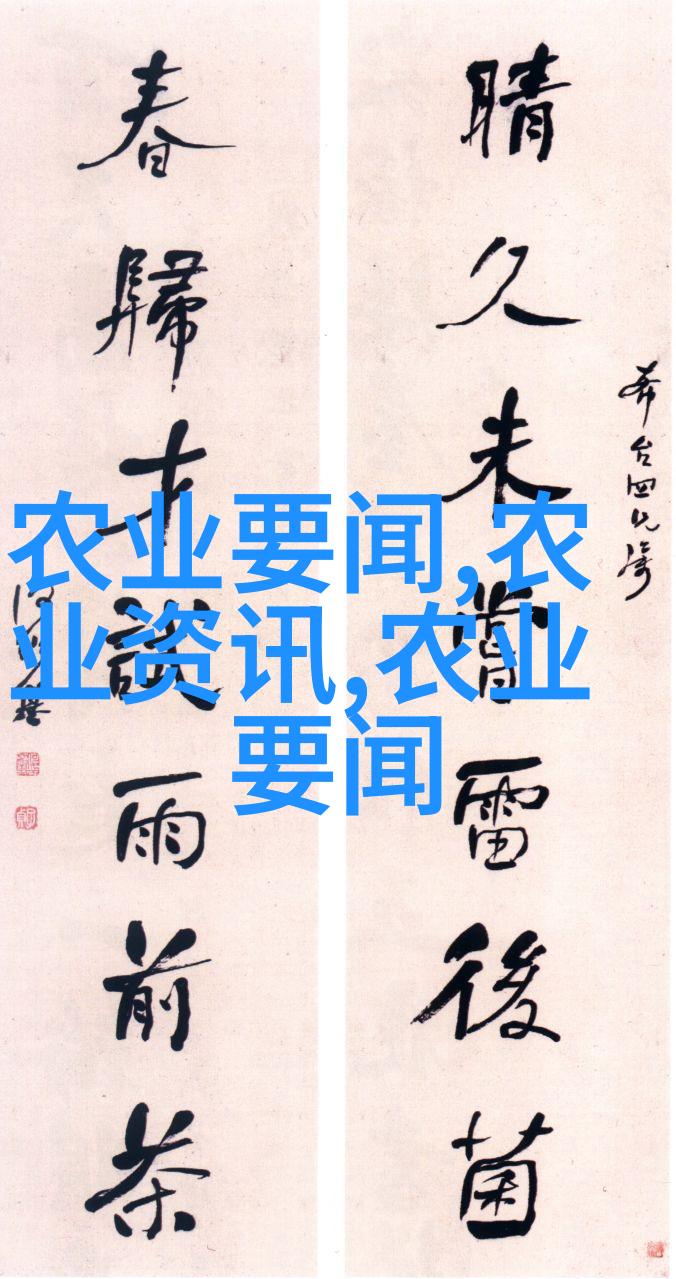 晴久未嘗雷後菌
春歸才試雨前茶
农业要闻,农
业资讯,农业
要闻